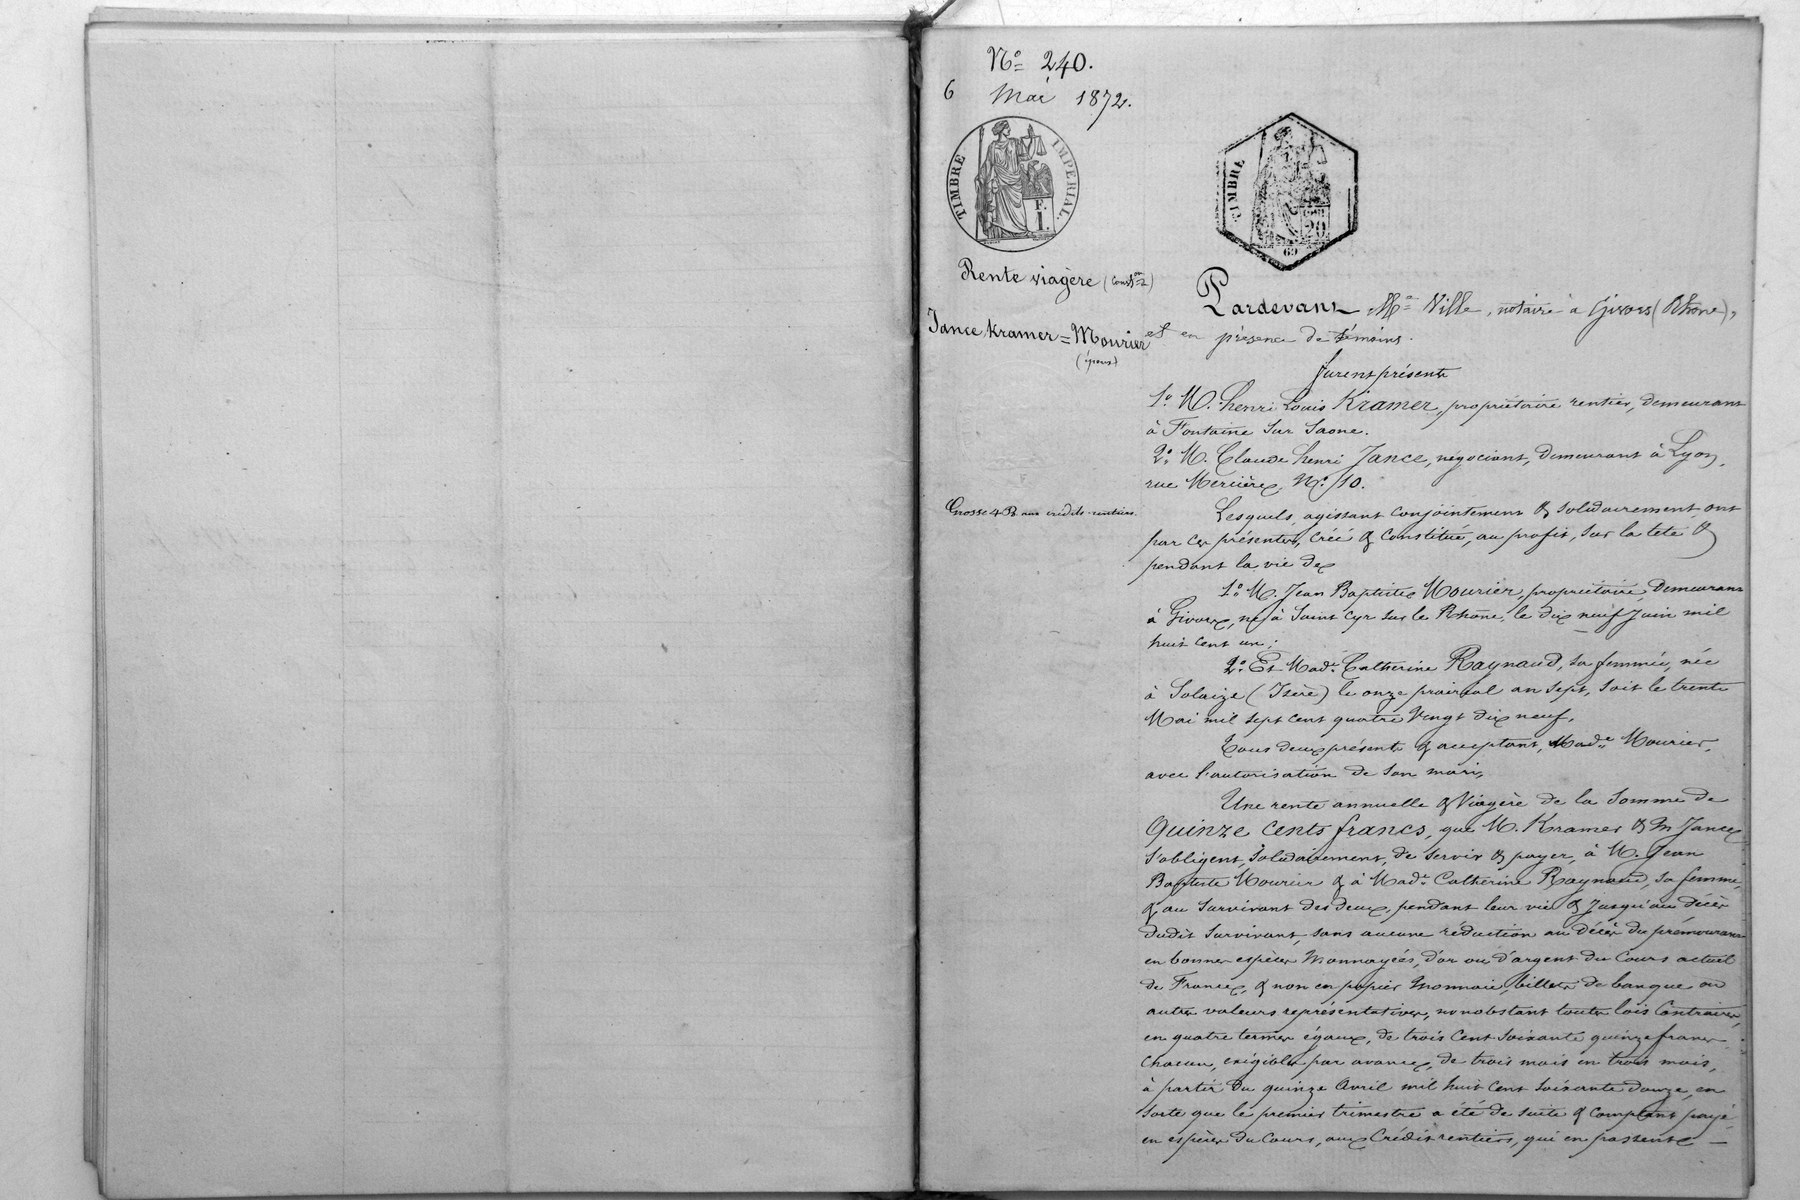 N° 240.
6 Mai 1872.
TIMBRE IMPERIAL.
F.
1.
TIMBRE
20
69
Rente viagère (Conston)
Jance, Kramer = Mourier
(époux)
Grosse 4 R. aux crédits-rentiers.
Pardevant Me Ville, notaire à Givors (Rhône),
et en présence de témoins.
furent présents
1° M. Henri Louis Kramer, propriétaire rentier, demeurant
à Fontaine sur Saone.
2° M. Claude Henri Jance, négociant, demeurant à Lyon,
rue Mercière, N° 10.
Lesquels, agissant conjointement & solidairement ont
par ces présentes, créé & constitué, au profit, sur la tête &
pendant la vie de
1° M. Jean Baptiste Mourier, propriétaire, demeurant
à Givors, né à Saint Cyr sur le Rhône, le dix neuf Juin mil
huit cent un;
2° Et Made Catherine Raynaud, sa femme, née
à Solaize (Isère) le onze prairial an sept, soit le trente
Mai mil sept cent quatre vingt dix neuf,
Tous deux présents & acceptant, Made Mourier,
avec l'autorisation de son mari,
Une rente annuelle & Viagère de la somme de
Quinze cents francs, que M. Kramer & M Jance
s'obligent, solidairement, de servir & payer, à M. Jean
Baptiste Mourier & à Made Catherine Raynaud, sa femme,
& au survivant des deux, pendant leur vie & jusqu'au décès
dudit survivant, sans aucune réduction au décès du prémourant
en bonnes espèces monnayées, d'or ou d'argent du cours actuel
de France, & non en papier monnaie, billets de banque ou
autres valeurs représentatives, nonobstant toutes lois contraires,
en quatre termes égaux, de trois cent soixante quinze francs
chacun, exigibles par avance, de trois mois en trois mois,
à partir du quinze Avril mil huit cent soixante douze, en
sorte que le premier trimestre a été de suite & comptant payé
en espèces du cours, aux Crédits rentiers, qui en passent